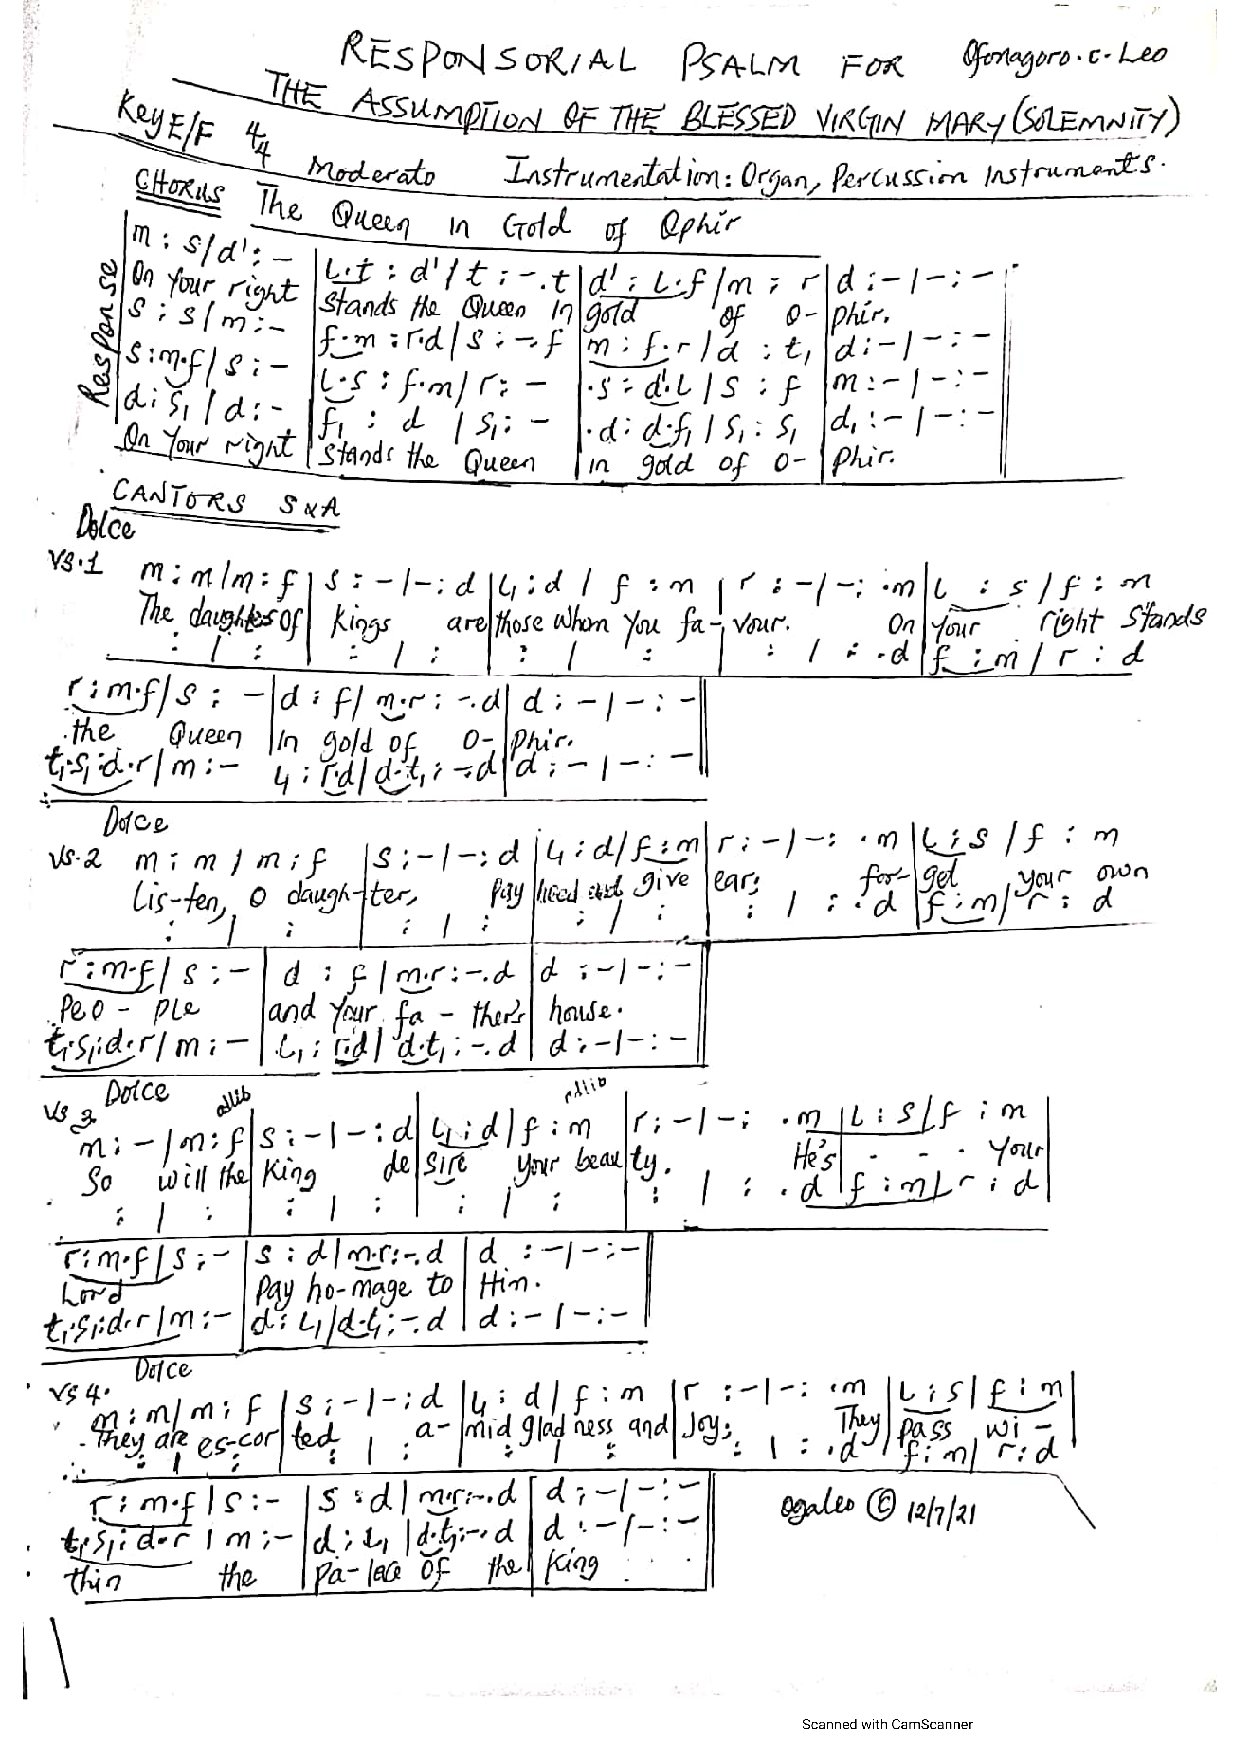 RESPONSORIAL PSALM FOR Ofonagoro.c.Leo
THE ASSUMPTION OF THE BLESSED VIRGIN MARY (SOLEMNITY)
Key E/F 4/4 Moderato Instrumentation: Organ, Percussion Instruments.
CHORUS The Queen in Gold of Ophir
Response
m : s / d' : - | l.t : d' / t : -.t | d' : l.f / m : r | d : - | - : -
On Your right | stands the Queen in | gold of O- | phir.
s : s / m : - | f.m : r.d / s : -.f | m : f.r / d : t, | d : - | - : -
s : m.f / s : - | l.s : f.m / r : - | .s : d'.l / s : f | m : - | - : -
d : s, / d : - | f, : d / s, : - | .d : d.f, / s, : s, | d, : - | - : -
On Your right | stands the Queen | in gold of O- | phir.
CANTORS S & A
Dolce
VS.1 m : m / m : f | s : - / - : d | l, : d / f : m | r : - / - : .m | l : s / f : m
The daughters of | kings are | those whom You fa- | vour. On | Your right stands
: / : | : / : | : / : | : / : .d | f : m / r : d
r : m.f / s : - | d : f / m.r : -.d | d : - / - : -
the Queen | in gold of O- | phir.
t,.s, : d.r / m : - | l, : r.d / d.t, : -.d | d : - / - : -
Dolce
VS.2 m : m / m : f | s : - / - : d | l, : d / f : m | r : - / - : .m | l : s / f : m
Lis-ten, O daugh- | ter, Pay | heed and give | ear; for- | get your own
: / : | : / : | : / : | : / : .d | f : m / r : d
r : m.f / s : - | d : f / m.r : -.d | d : - / - : -
Peo - ple | and Your fa - ther's | house.
t,.s, : d.r / m : - | l, : r.d / d.t, : -.d | d : - / - : -
Dolce adlib adlib
VS 3 m : - / m : f | s : - / - : d | l, : d / f : m | r : - / - : .m | l : s / f : m
So will the | King de | sire your beau | ty. He's | - - - Your
: / : | : / : | : / : | : / : .d | f : m / r : d
r : m.f / s : - | s : d / m.r : -.d | d : - / - : -
Lord | Pay ho-mage to | Him.
t,.s, : d.r / m : - | d : l, / d.t, : -.d | d : - / - : -
Dolce
VS 4. m : m / m : f | s : - / - : d | l, : d / f : m | r : - / - : .m | l : s / f : m
They are es-cor | ted a- | mid glad ness and | Joy; They | pass wi -
: / : | : / : | : / : | : / : .d | f : m / r : d
r : m.f / s : - | s : d / m.r : -.d | d : - / - : -
t,.s, : d.r / m : - | d : l, / d.t, : -.d | d : - / - : -
thin the | Pa-lace of the | King
Ogaleo © 12/7/21
Scanned with CamScanner